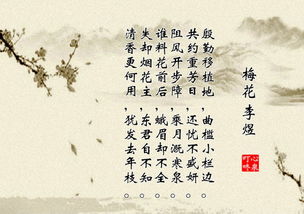 梅花 李煜
殷勤移植地,曲槛小栏边。
共约重芳日,还忧不盛妍。
阻风开步障,乘月溉寒泉。
谁料花前后,蛾眉却不全。
失却烟花主,东君自不知。
清香更何用,犹发去年枝。